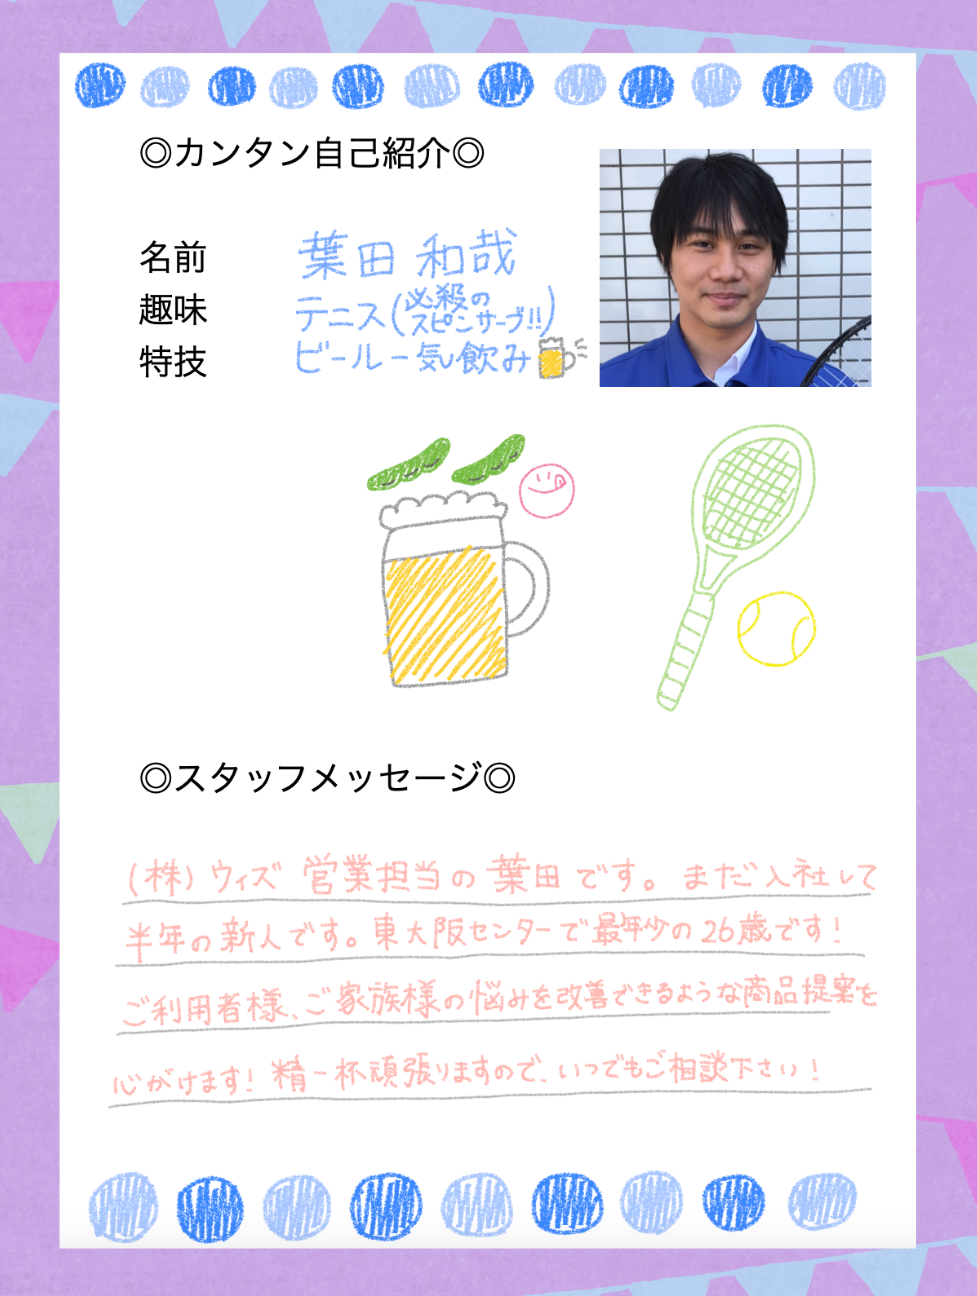 ◎カンタン自己紹介◎
名前 葉田 和哉
趣味 テニス(必殺のスピンサーブ!!)
特技 ビール一気飲み
◎スタッフメッセージ◎
(株)ウィズ 営業担当の葉田です。まだ入社して
半年の新人です。東大阪センターで最年少の26歳です!
ご利用者様、ご家族様の悩みを改善できるような商品提案を
心がけます!精一杯頑張りますので、いつでもご相談下さい!